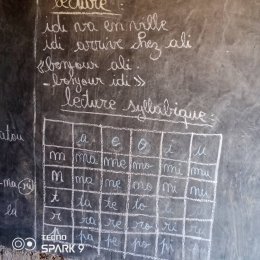 lecture :
idi va en ville
idi arrive chez ali
«bonjour ali.
_bonjour idi»
lecture syllabique:
atou
a e o i u
m ma me mo mi mu
la
t ta te to ti
r ra re ro ri ru
pa pe po pi
TECNO
SPARK 9